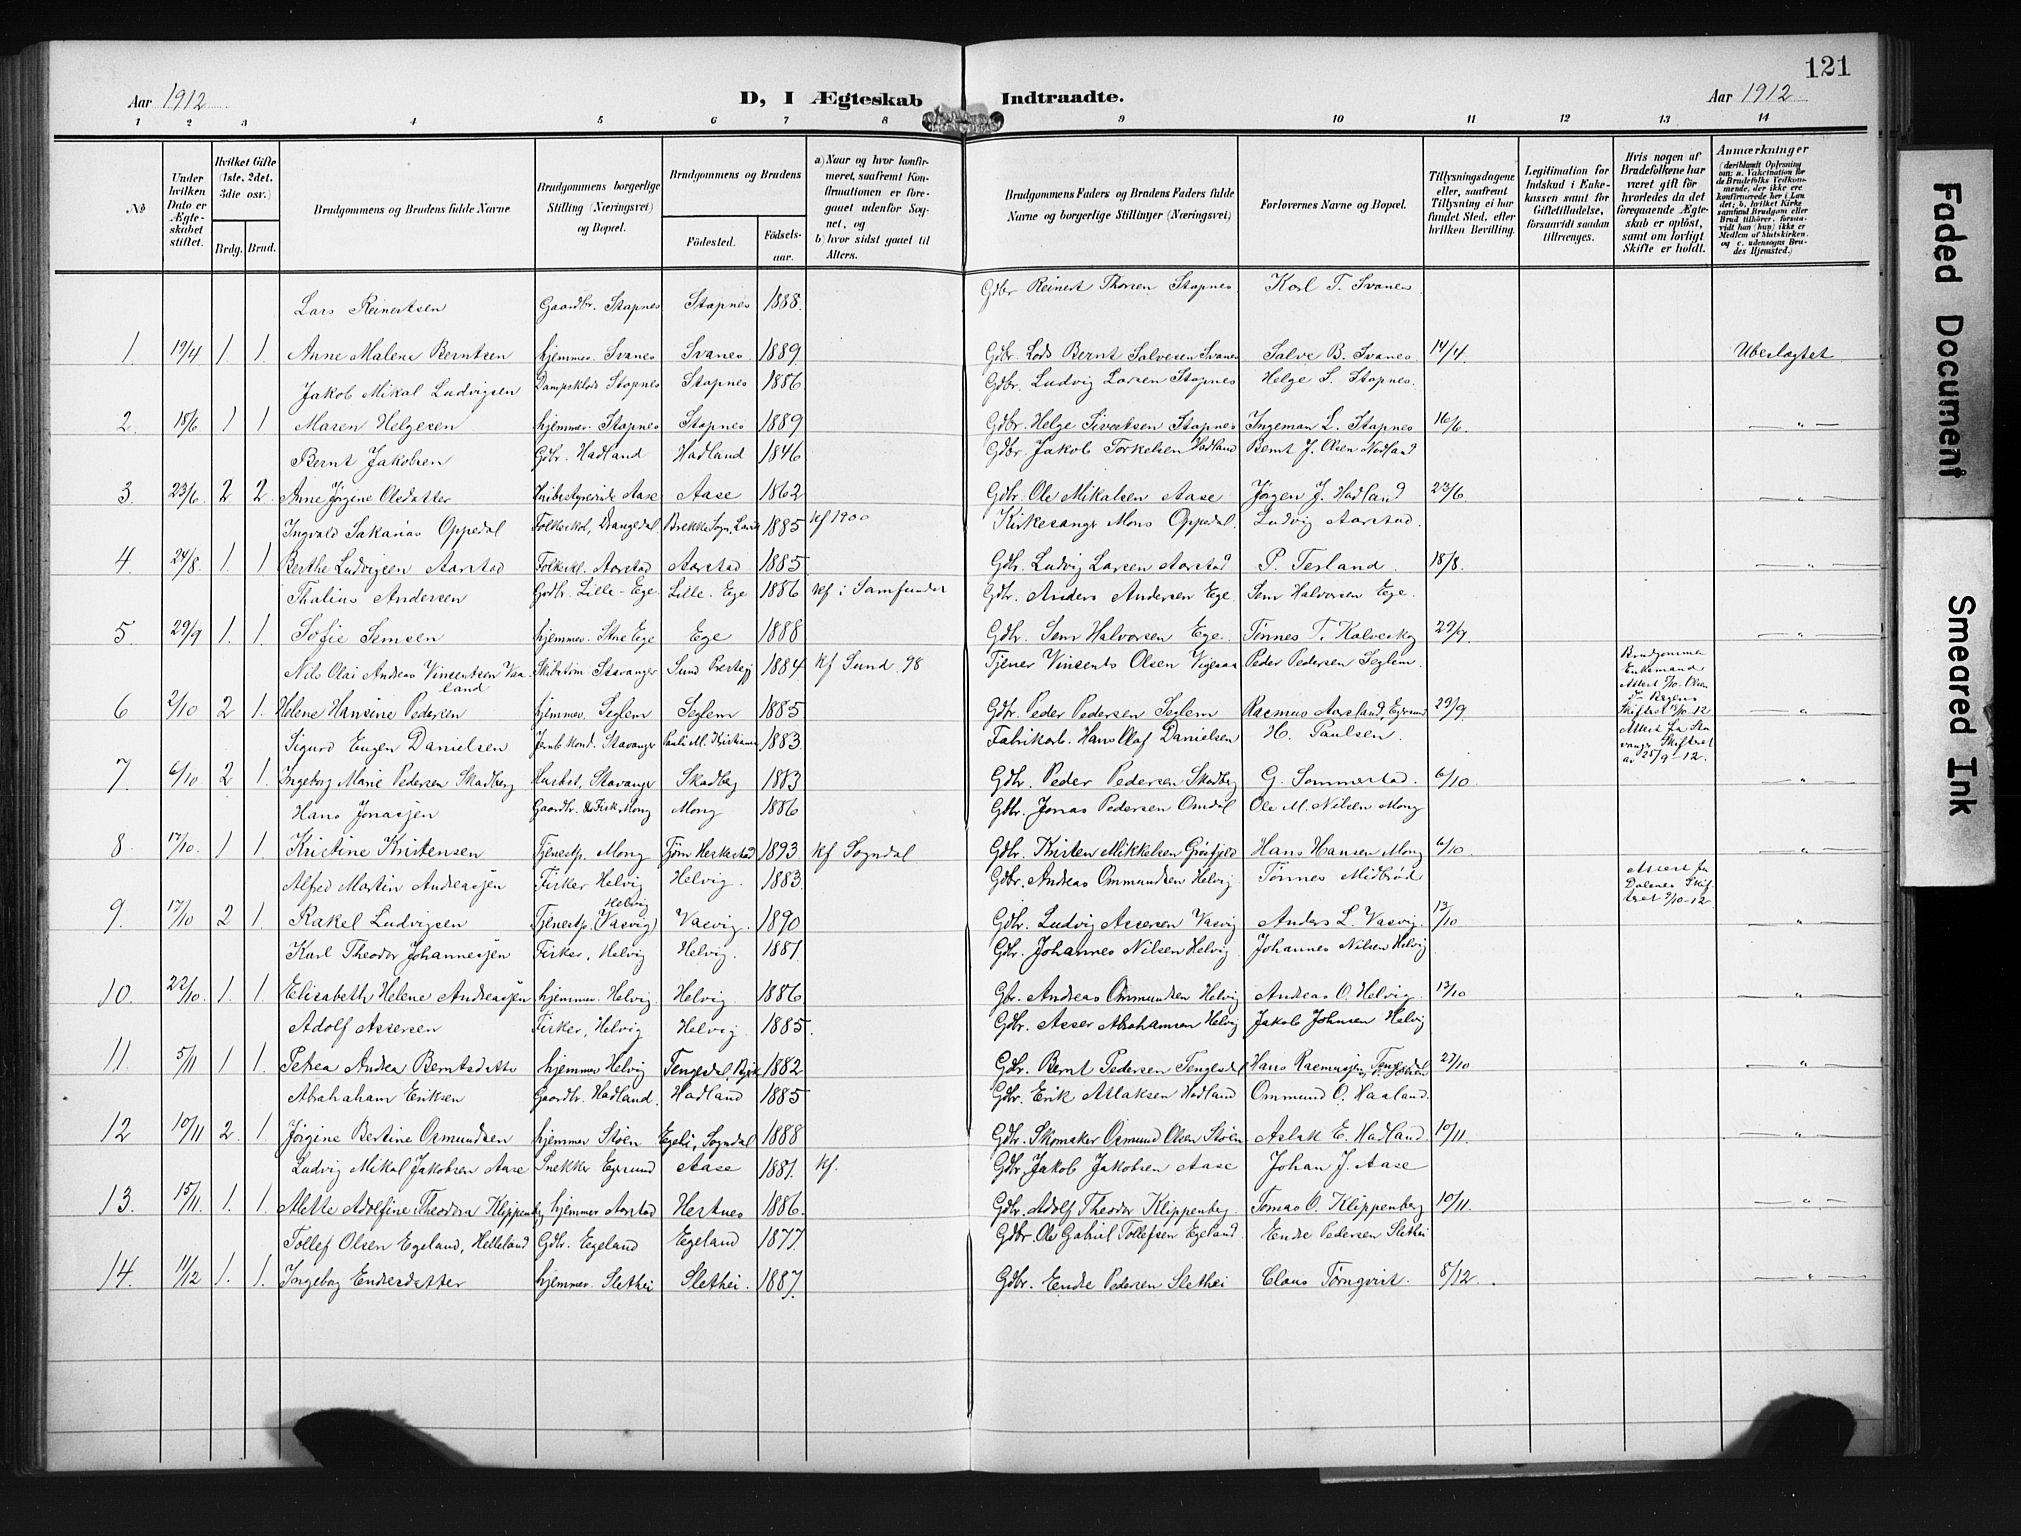 121
Aar 1912
D, I Ægteskab Indtraadte.
Aar 1912
1 2 3 4 5 6 7 8 9 10 11 12 13 14
No
Under hvilken Dato er Ægteskabet stiftet.
Hvilket Gifte (1ste, 2det, 3die osv.)
Brdg. Brud.
Brudgommens og Brudens fulde Navne
Brudgommens borgerlige Stilling (Næringsvei) og Bopæl.
Brudgommens og Brudens
Födested.
Födselsaar.
a) Naar og hvor konfirmeret, saafremt Konfirmationen er foregaaet udenfor Sognet, og
b) hvor sidst gaaet til Alters.
Brudgommens Faders og Brudens Faders fulde Navne og borgerlige Stillinger (Næringsvei)
Forlovernes Navne og Bopæl.
Tillysningsdagene eller, saafremt Tillysning ei har fundet Sted, efter hvilken Bevilling.
Legitimation for Indskud i Enkekassen samt for Giftetilladelse, forsaavidt saadan tiltrænges.
Hvis nogen af Brudefolkene har været gift för hvorledes da det foregaaende Ægteskab er oplöst, samt om lovligt Skifte er holdt.
Anmærkninger (deriblandt Oplysning om: a. Vakcination for de Brudefolks Vedkommende, der ikke ere konfirmerede her i Landet; b. hvilket Kirkesamfund Brudgom eller Brud tilhörer, forsaavidt han (hun) ikke er Medlem af Statskirken. og c. udensogns Brudes Hjemsted.)
Lars Reinertsen Gaardbr. Stapnes Stapnes 1888. Gdbr Reinert Thorsen Stapnes Karl T. Svanes
1 19/4 1. 1. Anne Malene Berntsen hjemmev. Svanes Svanes 1889 Gdbr. Lods Bernt Salvesen Svanes Salve B. Svanes 14/4. Ubeslægtet
Jakob Mikal Ludvigsen Stapnes Stapnes 1886 Gdbr. Ludvig Larsen Stapnes Helge S. Stapnes.
2. 18/6 1 1 Maren Helgesen hjemmev. Stapnes Stapnes 1889 Gdbr. Helge Sivertsen Stapnes Ingeman L. Stapnes 16/6. — „ —
Bernt Jakobsen Gdbr. Hadland Hadland 1846 Gdbr. Jakob Torkelsen Hadland Bernt J. Olsen Nodland
3. 23/6. 2 2. Anne Jörgine Olsdatter Husbestyrerinde Aase Aase 1862 Gdbr. Ole Mikalsen Aase Jörgen J. Hadland 23/6. — „ —
Ingvald Sakarias Oppedal Folkeskol. Drangedal Brekke Sogn, 1885 kf 1900 Kirkesangr Mons Oppedal. Ludvig Aarstad.
4. 24/8. 1. 1 Berthe Ludvigsen Aarstad Folkskl. Aarstad Aarstad 1885. Gdbr. Ludvig Larsen Aarstad P. Tesland. 18/8. — „ —
Thalius Andersen Gadbr. Lille-Ege Lille-Ege 1886 kf i Samfundet Gdbr. Anders Andersen Ege Sem Halvorsen Ege.
5. 29/9 1. 1. Sofie Semsen hjemmev. Stre Ege Ege 1888 Gdbr. Sem Halvorsen Ege. Tönnes T. Kalveskg 29/9. — „ —
Nils Olai Andreas Vincentsen Vaaland Stavanger Sund Prestegj 1884 kf Sund 98 Tjener Vincents Olsen Peder Pedersen Seglem. Brudgommen Enkemand
6 2/10 2 1. Helene Hansine Pedersen hjemmev. Seglem Seglem 1885 Gdbr. Peder Pedersen Seglem Rasmus Aarsland, Egersund 29/9. — „ —
Sigurd Eugen Danielsen Jernb.kond. Stavanger Pauli M. Kristiania 1883. Fabrikarb. Hans Olaf Danielsen H. Paulsen. Attest fra Stavanger Skifteret av 25/9-12.
7. 6/10 2 1. Ingeborg Marie Pedersen Skadberg Stavanger Skadbeg 1883 Gdbr. Peder Pedersen Skadberg G. Sommerstad. 6/10. „
Hans Jonassen Gaardbr. & Fisk. Mong Mong 1886 Gdbr. Jonas Pedersen Omdal Ole M. Nilsen Mong
8. 17/10. 1 1. Kristine Kristensen Tjenestp. Mong Tjörn Heskestad 1893. kf Sogndal Gdbr. Kristen Mikkelsen Grösfjeld Hans Hansen Mong 6/10. — „ —
Alfred Martin Andreassen Fisker Helvig Helvig. 1883. Gdbr. Andreas Ommundsen Helvig Tönnes Midbröd Attest fra Dalenes Skifteret 2/10-12.
9. 17/10 2 1. Rakel Ludvigsen Tjenestp. Helvig (Vasvig) Vasvig. 1890 Gdbr. Ludvig Assersen Vasvig Anders L. Vasvig. 13/10 „
Karl Theodor Johannessen Fisker, Helvig Helvig. 1887. Gdbr. Johannes Nilsen Helvig Johannes Nilsen Helvig
10. 22/10. 1. 1. Elisabeth Helene Andreassen hjemmev. Helvig Helvig. 1886 Gbr. Andreas Ommundsen Helvig Andreas O. Helvig 13/10 — „ —
Adolf Assersen Fisker, Helvig Helvig 1885. Gdbr. Asser Abrahamsen Helvig Jakob Johnsen Helvig
11. 5/11 1 1. Petrea Andrea Berntsdatter hjemmev Helvig Tengesdal 1882 Gdbr. Bernt Pedersen Tengesdal Hans Rasmussen, Tengesdal 27/10 „
Abraham Eriksen Gaardbr. Hadland. Hadland 1885 Gdbr. Erik Atlaksen Hadland Ommund O. Haaland.
12 10/11 2. 1. Jörgine Bertine Osmundsen hjemmev Stöen Egeli, Sogndal 1888 Gdbr. Skomaker Osmund Olsen Stöen Aslak E. Hadland 10/11. — „ —
Ludvig Mikal Jakobsen Aase Snekker Egersund Aase 1881. kf. Gdbr. Jakob Jakobsen Aase Johan J. Aase
13. 15/11. 1. 1. Mette Adolfine Theodora Klippenberg hjemmev Aarstad Hestnes 1886. Gdbr. Adolf Theodor Klippenberg. Tomas O. Klippenberg 10/11. — „ —
Tollef Olsen Egeland, Helleland Gdbr. Egeland Egeland 1877. Gdbr. Ole Gabriel Tollefsen Egeland. Endre Pedersen Slethei
14. 11/12 1. 1. Ingeborg Endresdatter hjemmev. Slethei Slethei. 1887. Gdbr. Endre Pedersen Slethei Claus Törnqvist. 8/12. — „ —
Faded Document
Smeared Ink